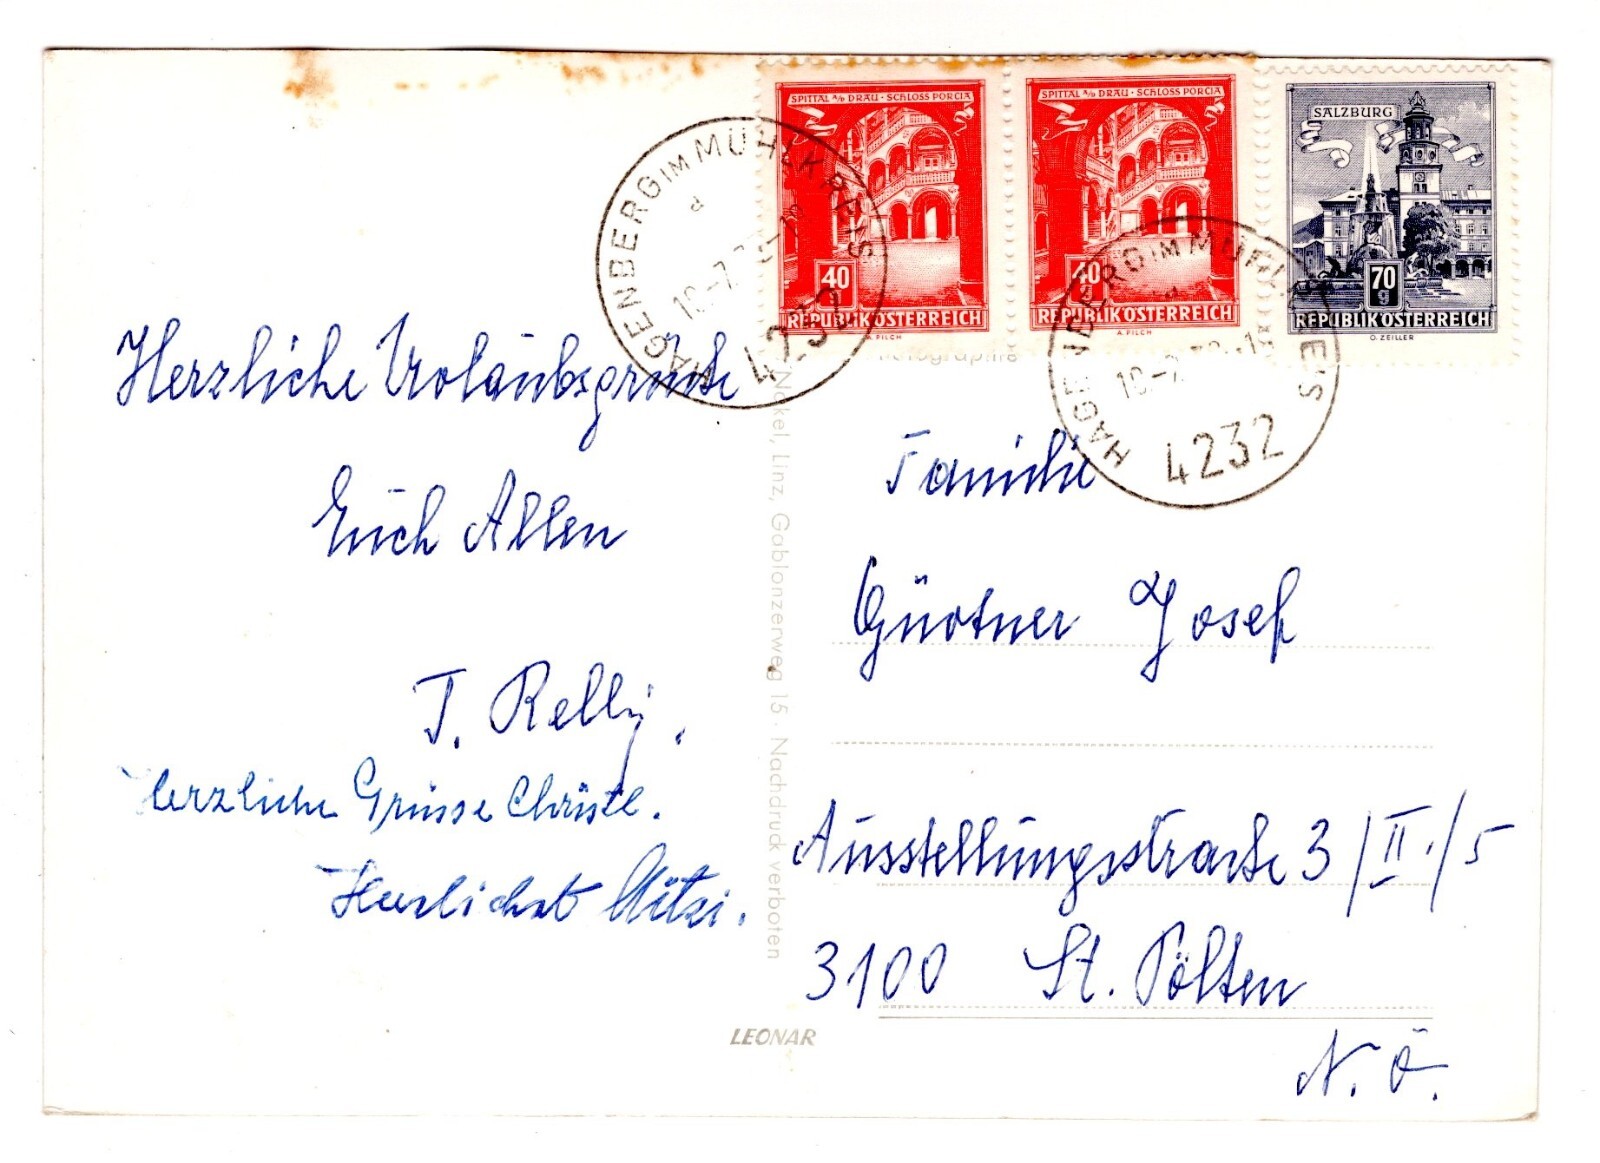 SPITTAL a/D DRAU · SCHLOSS PORCIA
40
REPUBLIK ÖSTERREICH
A. PILCH
SPITTAL a/D DRAU · SCHLOSS PORCIA
40
REPUBLIK ÖSTERREICH
A. PILCH
SALZBURG
70
g
REPUBLIK ÖSTERREICH
O. ZEILLER
HAGENBERG IM MÜHLKREIS
d
4232
HAGENBERG IM MÜHLKREIS
4232
Herzliche Urlaubsgrüße
Euch Allen
T. Relly.
Herzliche Grüsse Christl.
Herzlichst Mitzi.
Nakel, Linz, Gablonzerweg 15 · Nachdruck verboten
LEONAR
Familie
Gürtner Josef
Ausstellungsstraße 3/II./5
3100 St. Pölten
N. Ö.